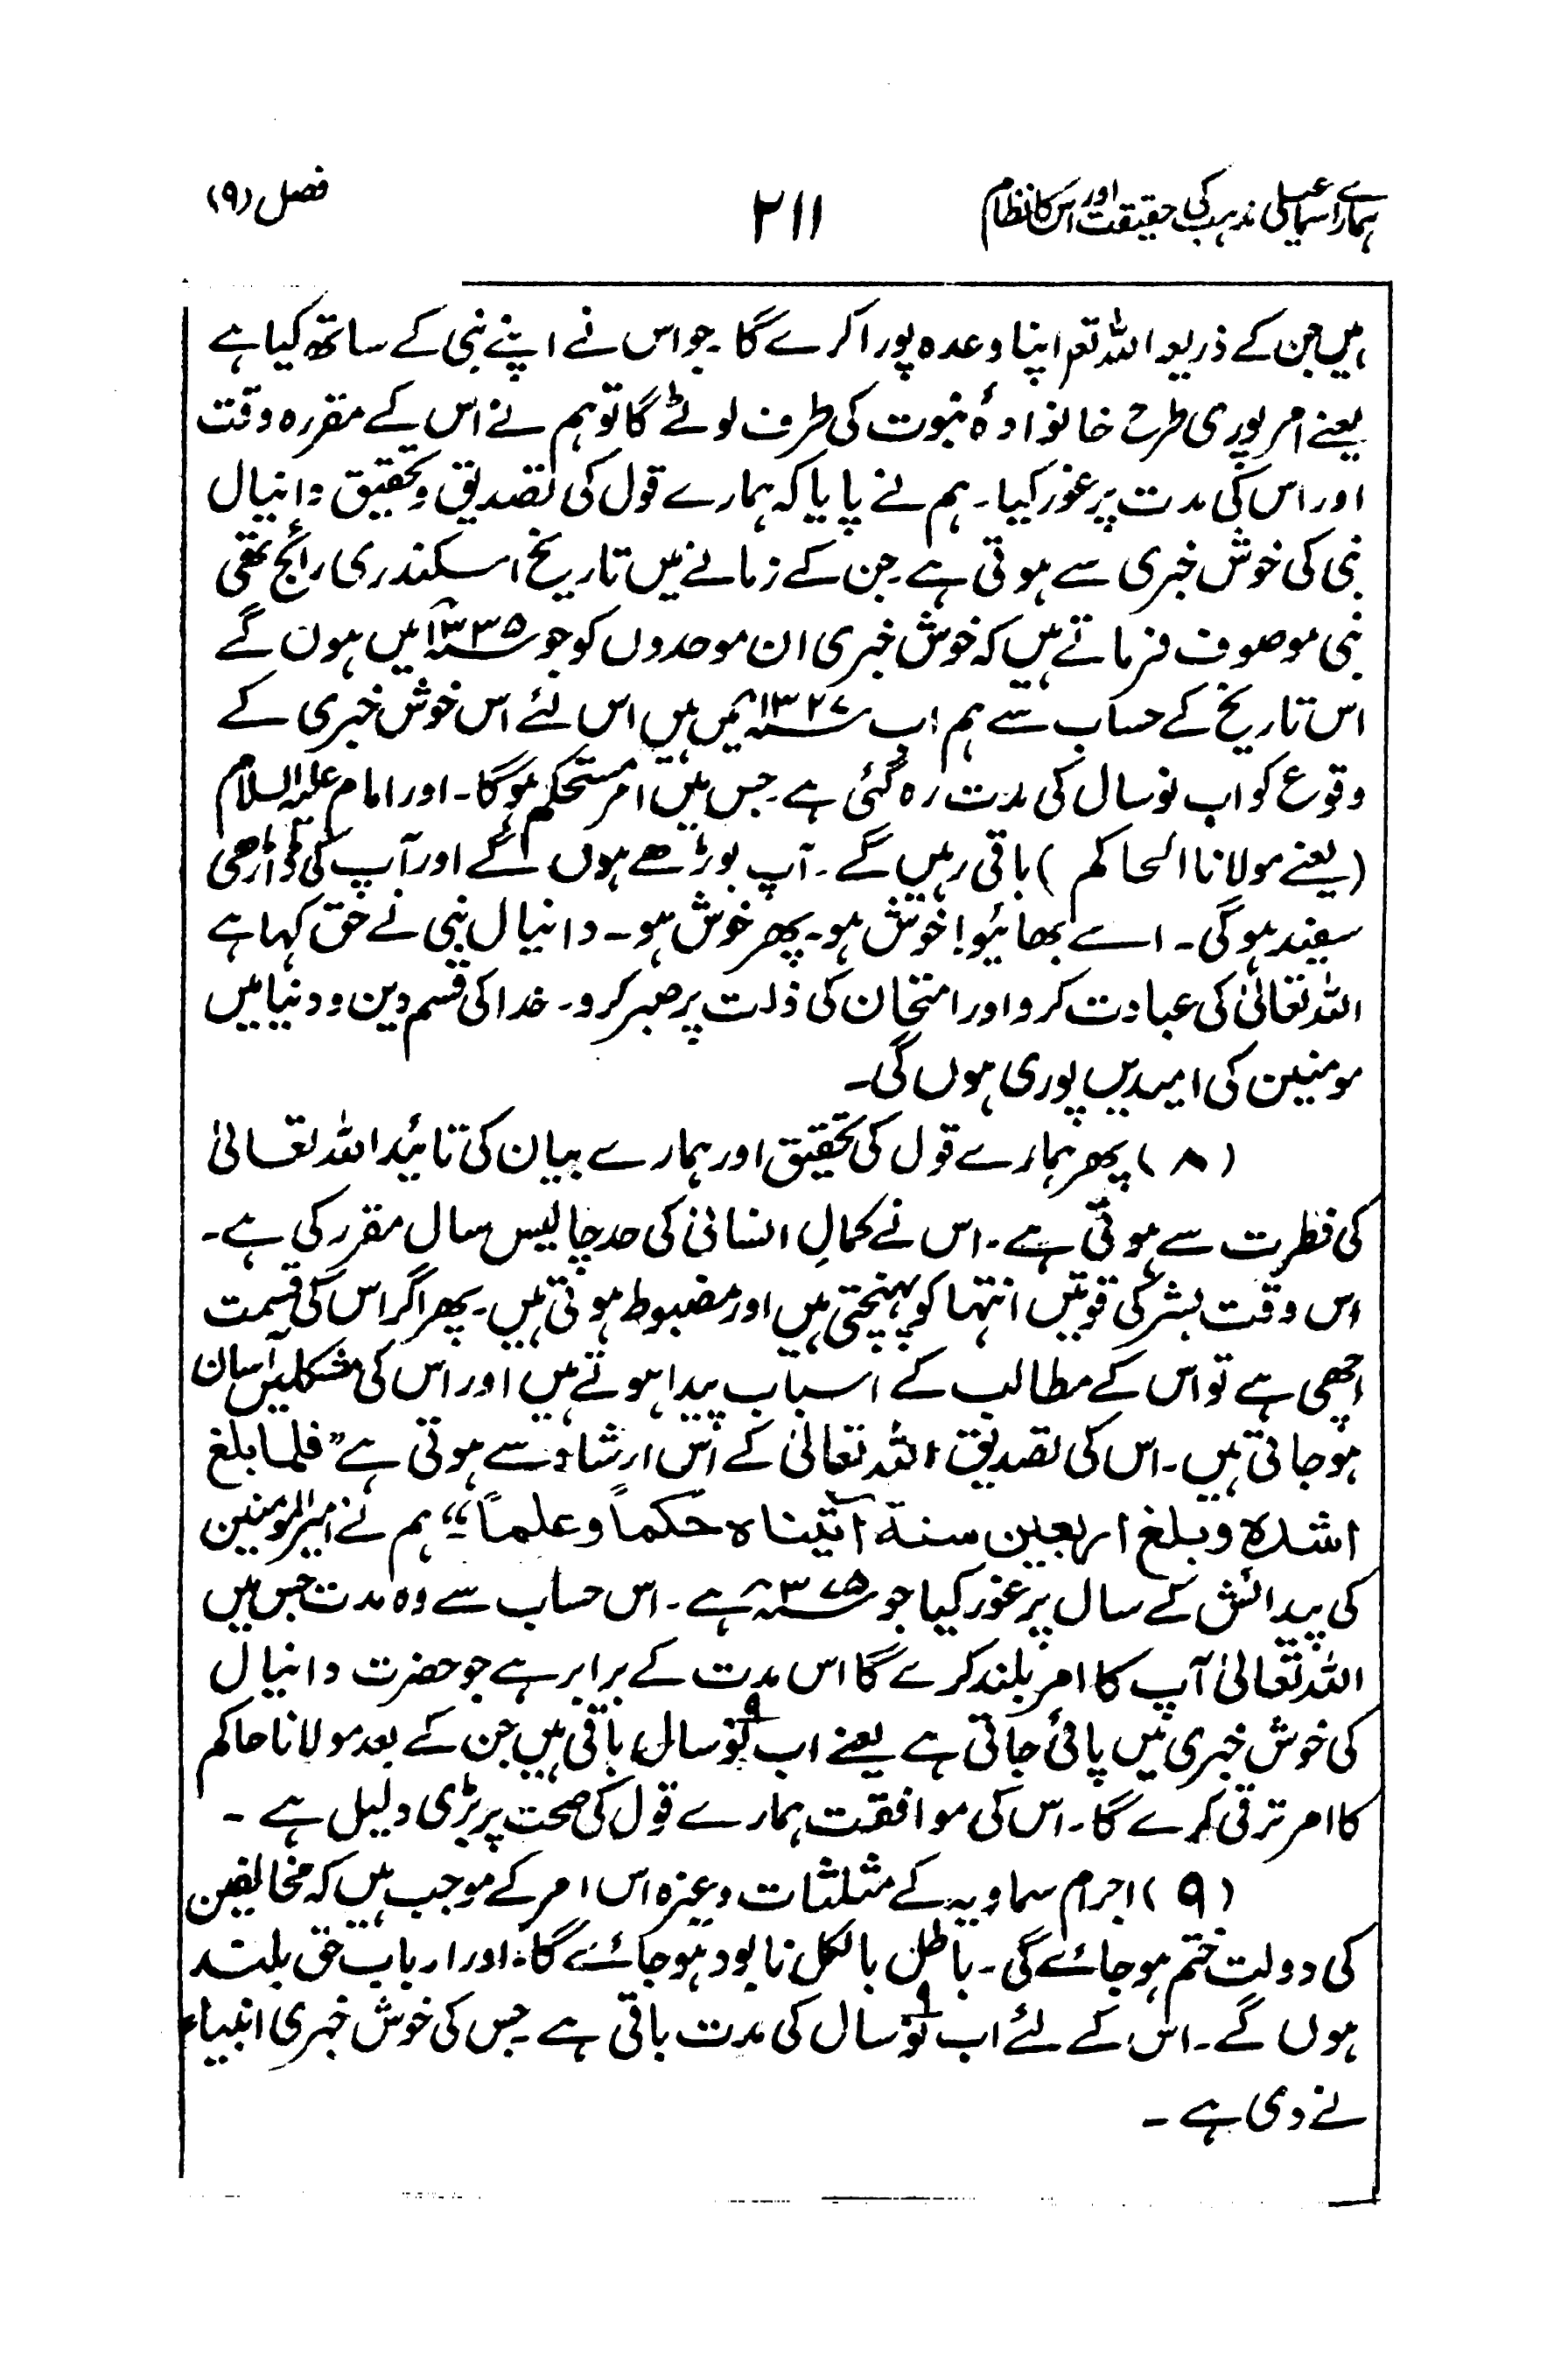 ہمارے اسماعیلی مذہب کی حقیقت اور اس کا نظام
۲۱۱
فصل (۹)
ہیں جن کے ذریعہ اللہ تعم اپنا وعدہ پورا کرے گا ۔ جو اس نے اپنے نبی کے ساتھ کیا ہے
یعنے امر پوری طرح خانوادۂ نبوت کی طرف لوٹے گا تو ہم نے اس کے مقررہ وقت
اور اس کی مدت پر غور کیا ۔ ہم نے پایا کہ ہمارے قول کی تصدیق و تحقیق دانیال
نبی کی خوش خبری سے ہوتی ہے ۔ جن کے زمانے میں تاریخ اسکندری رائج تھی
نبی موصوف فرماتے ہیں کہ خوش خبری ان موحدوں کو جو ۱۳۳۵؁ میں ہوں گے
اس تاریخ کے حساب سے ہم اب ۱۳۲۷؁ میں ہیں اس لئے اس خوش خبری کے
وقوع کو اب نو سال کی مدت رہ گئی ہے ۔ جس میں امر مستحکم ہوگا ۔ اور امام علیہ السلام
(یعنے مولانا الحاکم) باقی رہیں گے ۔ آپ بوڑھے ہوں گے اور آپ کی ڈاڑھی
سفید ہوگی ۔ اے بھائیو! خوش ہو ۔ پھر خوش ہو ۔ دانیال نبی نے حق کہا ہے
اللہ تعالیٰ کی عبادت کرو اور امتحان کی ذلت پر صبر کرو ۔ خدا کی قسم دین و دنیا میں
مومنین کی امیدیں پوری ہوں گی ۔
(۸) پھر ہمارے قول کی تحقیق اور ہمارے بیان کی تائید اللہ تعالیٰ
کی فطرت سے ہوتی ہے ۔ اس نے کمالِ انسانی کی حد چالیس سال مقرر کی ہے ۔
اس وقت بشر کی قوتیں انتہا کو پہنچتی ہیں اور مضبوط ہوتی ہیں ۔ پھر اگر اس کی قسمت
اچھی ہے تو اس کے مطالب کے اسباب پیدا ہوتے ہیں اور اس کی مشکلیں آسان
ہو جاتی ہیں ۔ اس کی تصدیق اللہ تعالیٰ کے اس ارشاد سے ہوتی ہے ”فلما بلغ
اشدہ و بلغ اربعین سنة آتیناہ حکماً و علماً“ ہم نے امیر المومنین
کی پیدائش کے سال پر غور کیا جو ۳۷۵؁ ہے ۔ اس حساب سے وہ مدت جس میں
اللہ تعالیٰ آپ کا امر بلند کرے گا اس مدت کے برابر ہے جو حضرت دانیال
کی خوش خبری میں پائی جاتی ہے یعنے اب نو ۹ سال باقی ہیں جن کے بعد مولانا حاکم
کا امر ترقی کرے گا ۔ اس کی موافقت ہمارے قول کی صحت پر بڑی دلیل ہے ۔
(۹) اجرام سماویہ کے مثلثات وغیرہ اس امر کے موجب ہیں کہ مخالفین
کی دولت ختم ہو جائے گی ۔ باطل بالکل نابود ہو جائے گا ۔ اور ارباب حق بلند
ہوں گے ۔ اس کے لئے اب نو ۹ سال کی مدت باقی ہے جس کی خوش خبری انبیاء
نے دی ہے ۔